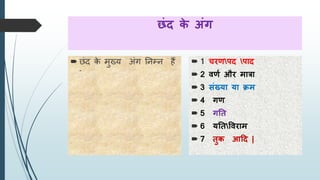 छंद के अंग
छंद के मुख्य अंग निम्न हैं
-
1 चरण\पद \पाद
2 वर्ण और मात्रा
3 संख्या या क्रम
4 गण
5 गति
6 यति\विराम
7 तुक आदि |